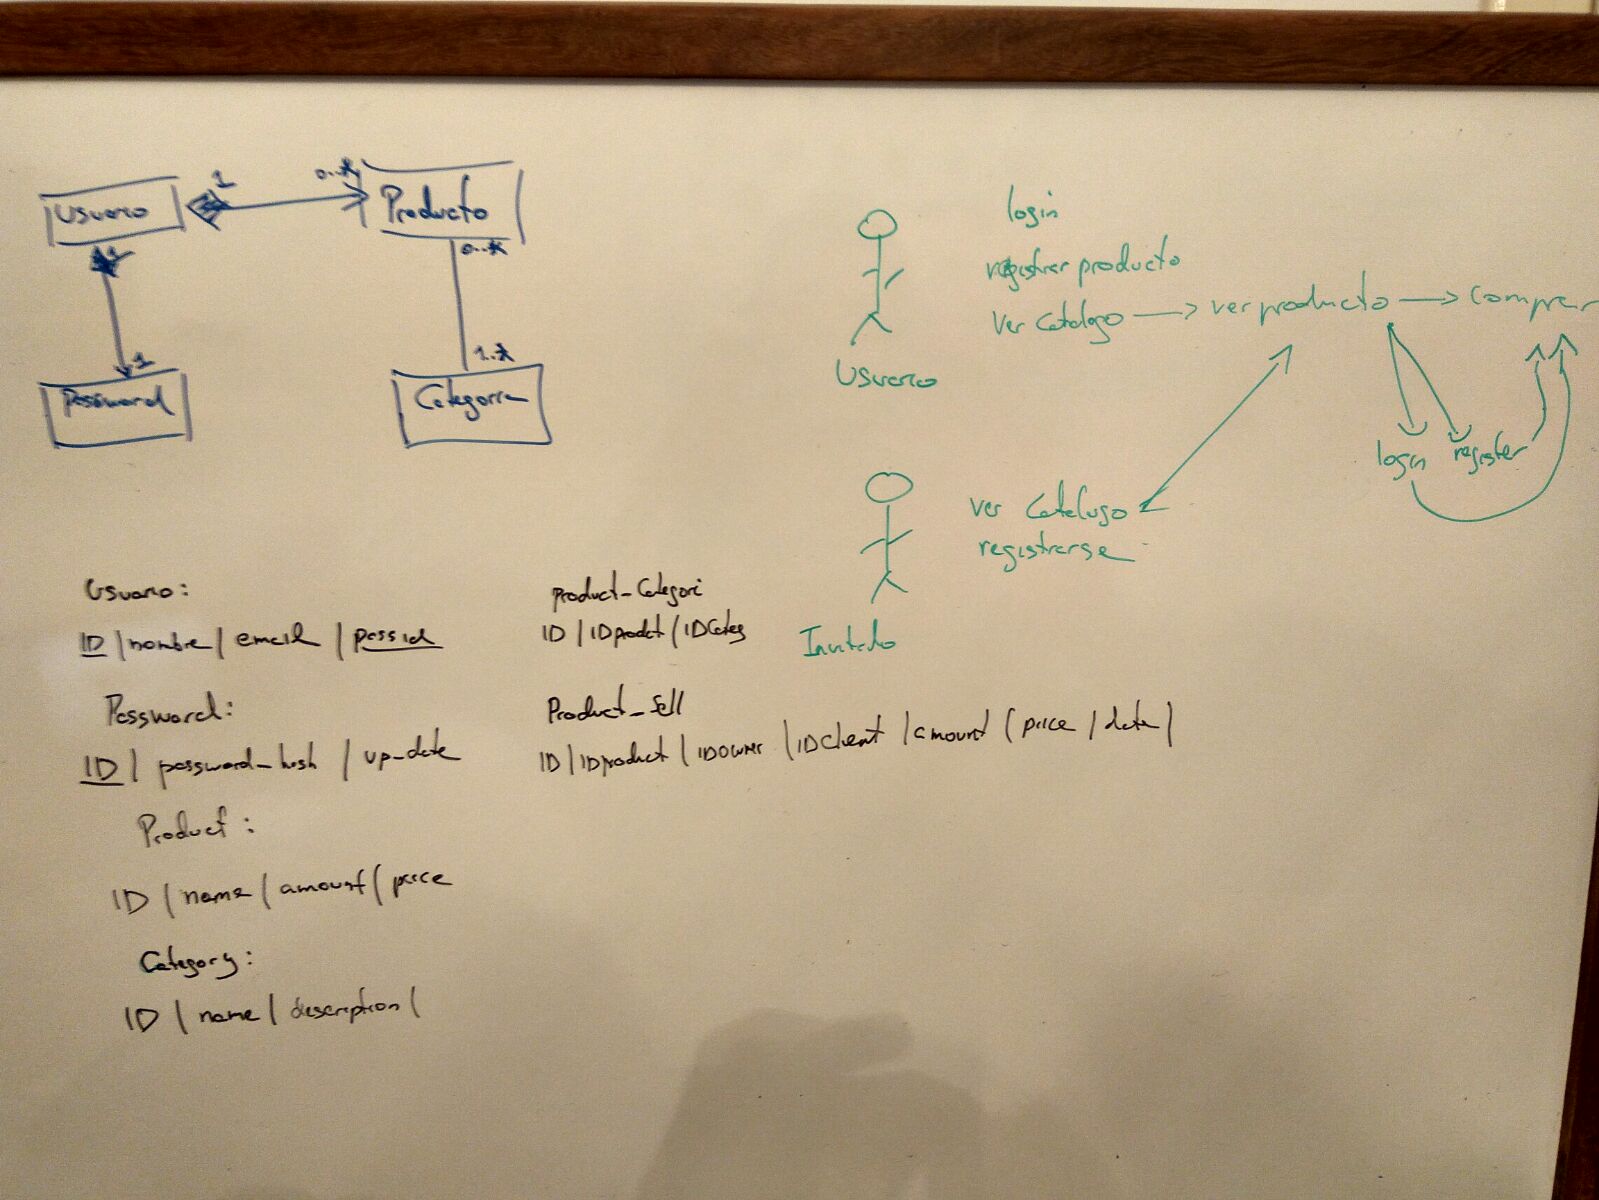 Usuario
1
0..*
Producto
0..*
1
1..*
Password
Categoria
login
registrar producto
ver Catalogo → ver producto → comprar
login register
Usuario
ver Catalogo
registrarse
Invitado
Usuario:
ID | nombre | email | passid
Password:
ID | password_hash | up_date
Product:
ID | name | amount | price
Category:
ID | name | description |
Product_Categori
ID | IDprodct | IDCateg
Product_Sell
ID | IDproduct | IDOwner | IDClient | amount | price | date |